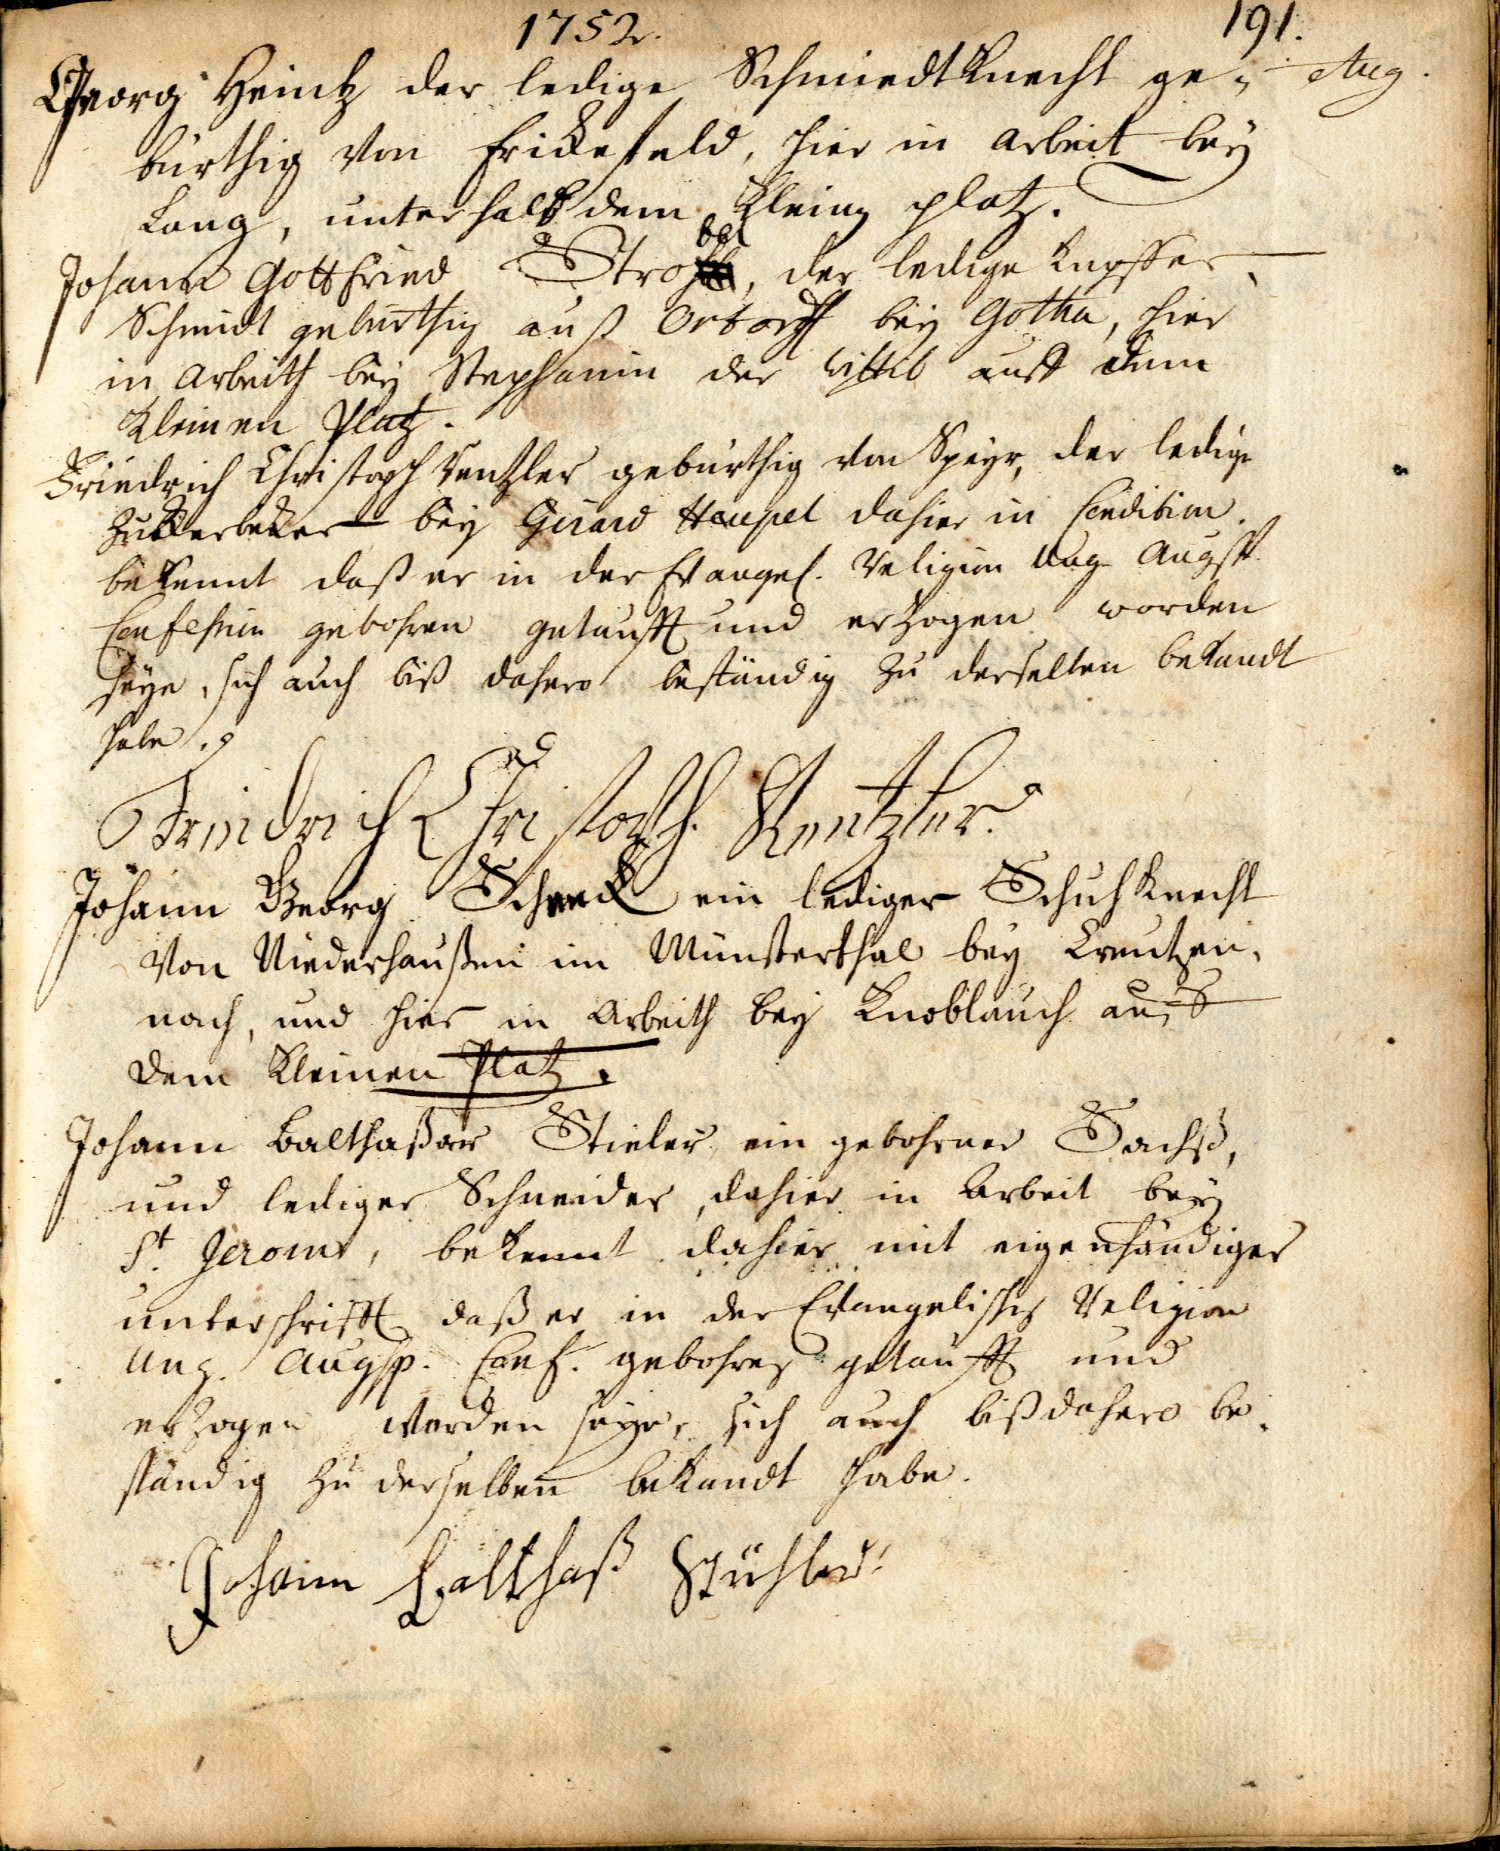 1752. 191.
Georg Heintz der ledige Schmiedt Knecht ge- Aug.
bürthig von Frickefeld, hier in Arbeit bey
Lang, unterhalb dem kleinen platz.
Johann Gottfried Strobel, der ledige Kupffer
Schmidt gebürthig auß Ordorff bey Gotha, hier
in Arbeith bey Stephanin der Wittib auff dem
kleinen Platz.
Friedrich Christoph Rentzler gebürthig von Speyr, der ledige
Zuckerbecker bey Girard Haupel dahier in Condition.
bekennt daß er in der Evangel. Religion Ung. Augsp.
Confession gebohren getaufft und erzogen worden
seye, sich auch biß dahero beständig zu derselben bekandt
habe.
Friedrich Christoph Rentzler.
Johann Georg Scheck ein lediger Schuhknecht
von Niederhaußen im Münsterthal bey Creutzen-
nach, und hier in Arbeith bey Knoblauch auff
dem kleinen Platz.
Johann Balthaßar Stieler ein gebohrner Sachß,
und lediger Schneider, dahier in Arbeit bey
St. Jerome, bekennt dahier mit eigenhändiger
unterschrifft daß er in der Evangelischen Religion
Ung. Augsp. Conf. gebohren getaufft und
erzogen worden seye, sich auch biß dahero be-
ständig zu derselben bekandt habe.
Johann Balthaß Stühler